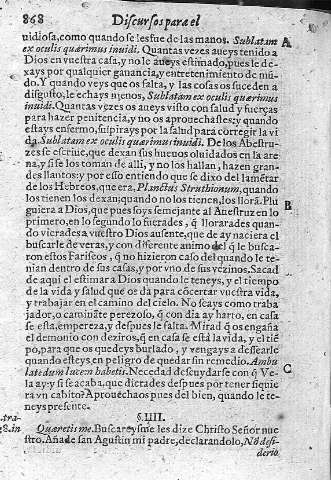 868 Discursos para el
uidiosa, como quando se les fue de las manos. Sublatam A
ex oculis quærimus inuidi. Quantas vezes aueys tenido a
Dios en vuestra casa, y no le aueys estimado, pues le de-
xays por qualquier ganancia, y entretenimiento de mũ-
do. Y quando veys que os falta, y las cosas os suceden a
disgusto, le echays menos, Sublatam ex oculis quærimus
inuidi. Quantas vezes os aueys visto con salud y fuerças
para hazer penitencia, y no os aprouechastes: y quando
estays enfermo, suspirays por la salud para corregir la vi
da. Sublatam ex oculis quærimus inuidi. De los Abestru-
zes se escriue, que dexan sus hueuos oluidados en la are
na, y si se los toman de alli, y no los hallan, hazen gran-
des llantos: y por esso entiendo que se dixo del lamẽtar
de los Hebreos, que era, Planctus Struthionum, quando
los tienen los dexan: quando no los tienen, los llorã. Plu
guiera a Dios, que pues soys semejante al Auestruz en lo B
primero, en lo segundo lo fuerades, q̃ llorarades quan-
do vierades a vuestro Dios ausente, que de ay naciera el
buscarle de veras, y con differente animo del q̃ le busca-
ron estos Fariseos, q̃ no hizieron caso del quando le te-
nian dentro de sus casas, y por vno de sus vezinos. Sacad
de aqui el estimar a Dios quando le teneys, y el tiempo
de la vida y salud que os da para cõcertar vuestra vida,
y trabajar en el camino del cielo. No seays como traba
jador, o caminãte perezoso, q̃ con dia ay harto, en casa
se està, empereza, y despues le falta. Mirad q̃ os engaña
el demonio con deziros, q̃ en casa se està la vida, y el tiẽ
po, para que os quedeys burlado, y vengays a dessearle
quando esteys en peligro de quedar sin remedio. Ambu
late dum lucem habetis. Necedad descuydarse con q̃ Ve- C
la ay: y si se acaba, que dierades despues por tener siquie
ra vn cabito? Aprouechaos pues del bien, quando le te-
neys presente.
§. IIII.
Quæretis me. Buscareysme les dize Christo Señor nue
stro. Añade san Agustin mi padre, declarandolo, No desi-
derio